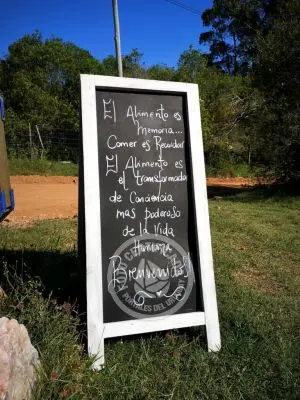 El Alimento es
Memoria...
Comer es Recordar
El Alimento es
el transformador
de Conciencia
mas poderoso
de la Vida
Humana
Bienvenidos!